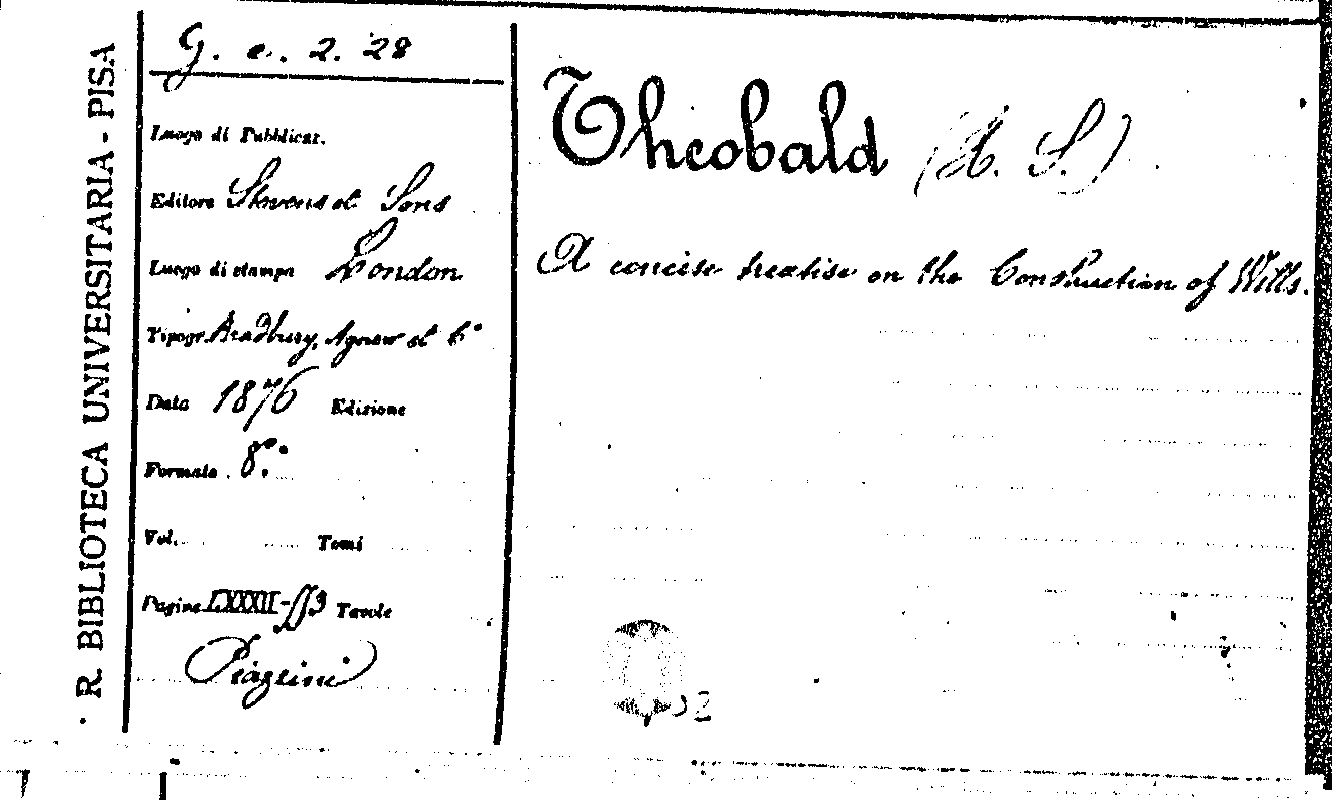 R. BIBLIOTECA UNIVERSITARIA - PISA
G. e. 2. 28
Luogo di Pubblicaz.
Editore Stevens et Sons
Luogo di stampa London
Tipogr. Bradbury, Agnew et C°
Data 1876 Edizione
Formato 8.°
Vol. Tomi
Pagine LXXXII-553 Tavole
Piazzini
Theobald (H. S.)
A concise treatise on the Construction of Wills.